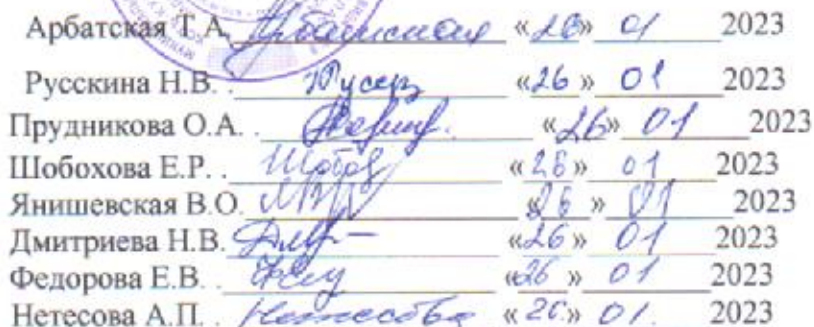 Арбатская Т.А. Арбатская «26» 01 2023
Русскина Н.В. . «26» 01 2023
Прудникова О.А. . «26» 01 2023
Шобохова Е.Р. . Шобох «26» 01 2023
Янишевская В.О. «26» 01 2023
Дмитриева Н.В. «26» 01 2023
Федорова Е.В. . «26» 01 2023
Нетесова А.П. . Нетесова «26» 01. 2023